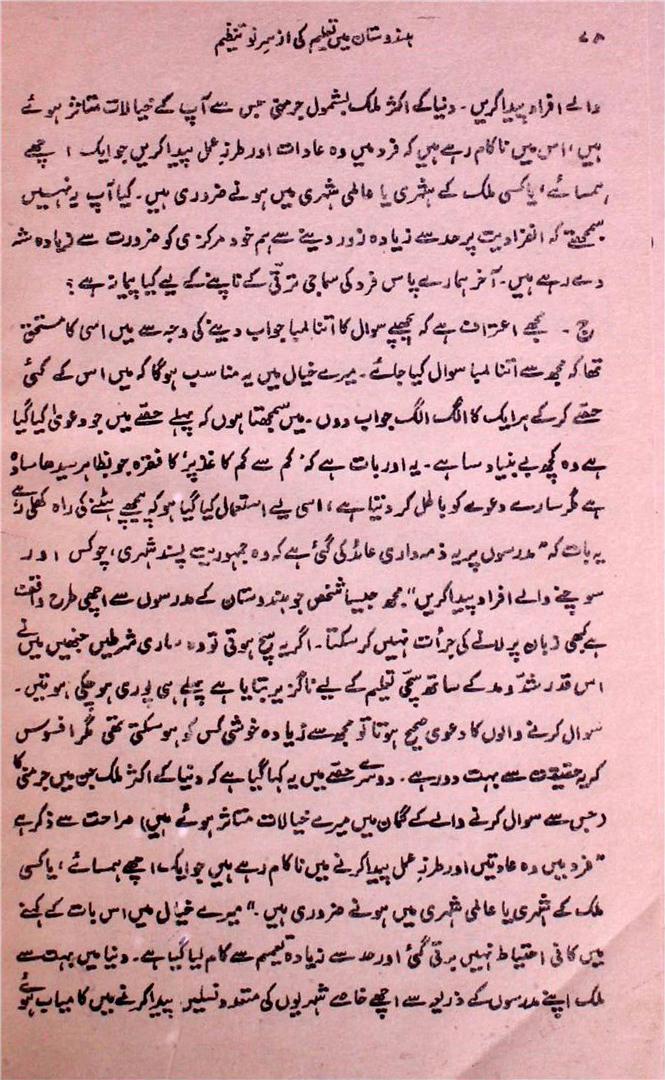 ۷۸ ہندوستان میں تعلیم کی از سرِ نو تنظیم
والے افراد پیدا کریں۔ دنیا کے اکثر ملک بشمول جرمنی جس سے آپ کے خیالات متاثر ہوئے
ہیں، اس میں ناکام رہے ہیں کہ فرد میں وہ عادات اور طرزِ عمل پیدا کریں جو ایک اچھے
ہمسائے، یا کسی ملک کے شہری یا عالمی شہری میں ہونے ضروری ہیں۔ کیا آپ یہ نہیں
سمجھتے کہ انفرادیت پر حد سے زیادہ زور دینے سے ہم خود مرکزی کو ضرورت سے زیادہ شہ
دے رہے ہیں۔ آخر ہمارے پاس فرد کی سماجی ترقی کے ناپنے کے لیے کیا پیمانہ ہے؟
ج۔ مجھے اعتراف ہے کہ پچھلے سوال کا اتنا لمبا جواب دینے کی وجہ سے میں اسی کا مستحق
تھا کہ مجھ سے اتنا لمبا سوال کیا جائے۔ میرے خیال میں یہ مناسب ہوگا کہ میں اس کے کئی
حصے کرکے ہر ایک کا الگ الگ جواب دوں۔ میں سمجھتا ہوں کہ پہلے حصے میں جو دعویٰ کیا گیا
ہے وہ کچھ بے بنیاد سا ہے۔ یہ اور بات ہے کہ "کم سے کم کاغذ پر" کا فقرہ جو بظاہر سیدھا سادہ
ہے مگر سارے دعوے کو باطل کر دیتا ہے، اسی لیے استعمال کیا گیا ہو کہ پیچھے ہٹنے کی راہ کھلی رہے
یہ بات کہ "مدرسوں پر یہ ذمہ داری عائد کی گئی ہے کہ وہ جمہوریت پسند شہری، چوکس اور
سوچنے والے افراد پیدا کریں" مجھ جیسا شخص جو ہندوستان کے مدرسوں سے اچھی طرح واقف
ہے کبھی زبان پر لانے کی جرأت نہیں کر سکتا۔ اگر یہ سچ ہوتی تو وہ ساری شرطیں جنھیں میں نے
اس قدر شدّ و مد کے ساتھ سچّی تعلیم کے لیے ناگزیر بتایا ہے پہلے ہی پوری ہو چکی ہوتیں۔
سوال کرنے والوں کا دعویٰ صحیح ہوتا تو مجھ سے زیادہ خوشی کس کو ہو سکتی تھی مگر افسوس
کہ یہ حقیقت سے بہت دور ہے۔ دوسرے حصے میں یہ کہا گیا ہے کہ دنیا کے اکثر ملک جن میں جرمنی کا
(جس سے سوال کرنے والے کے گمان میں میرے خیالات متاثر ہوئے ہیں) صراحت سے ذکر ہے
"فرد میں وہ عادتیں اور طرزِ عمل پیدا کرنے میں ناکام رہے ہیں جو ایک اچھے ہمسائے، یا کسی
ملک کے شہری یا عالمی شہری میں ہونے ضروری ہیں۔" میرے خیال میں اس بات کے کہنے
میں کافی احتیاط نہیں برتی گئی اور حد سے زیادہ تعمیم سے کام لیا گیا ہے۔ دنیا میں بہت سے
ملک اپنے مدرسوں کے ذریعہ سے اچھے خاصے شہریوں کی متعدد نسلیں پیدا کرنے میں کامیاب ہوئے